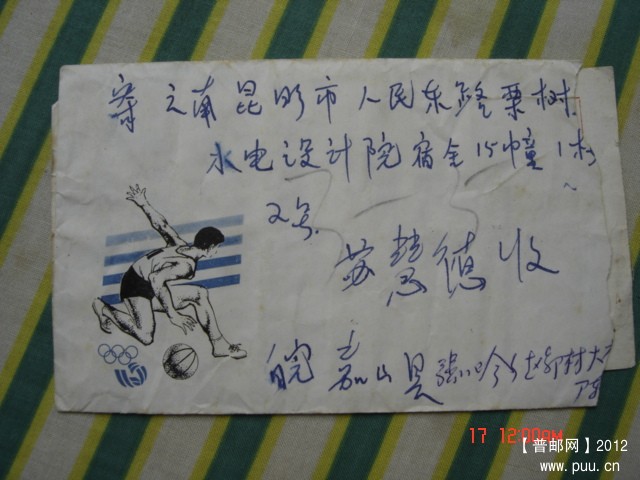 寄 云南昆明市人民东路栗树
水电设计院宿舍15幢1
2号
苏慧德 收
皖 嘉山县 村大
17 12:00AM
【普邮网】2012
www.puu.cn